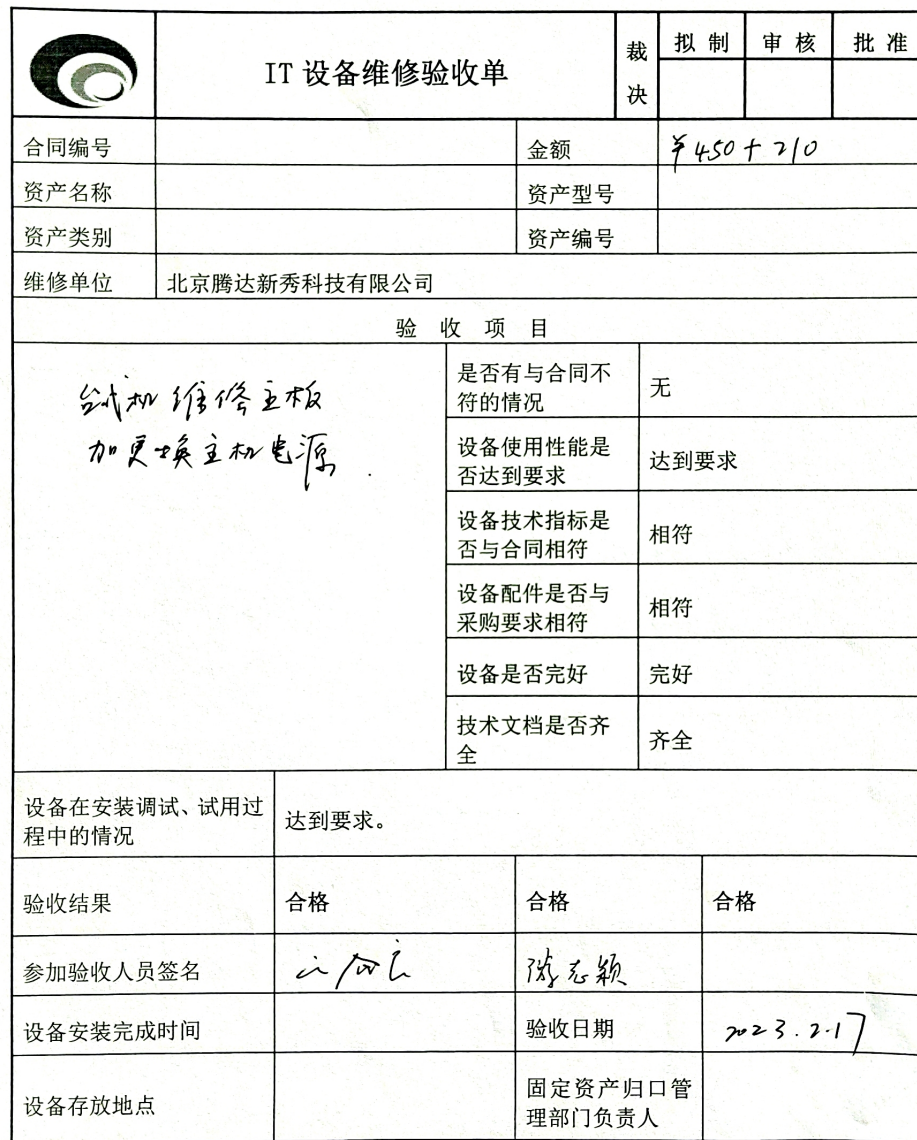 IT 设备维修验收单
裁决
拟 制
审 核
批 准
合同编号
金额
¥450+210
资产名称
资产型号
资产类别
资产编号
维修单位
北京腾达新秀科技有限公司
验 收 项 目
台式机维修主板
加更换主机电源.
是否有与合同不
符的情况
无
设备使用性能是
否达到要求
达到要求
设备技术指标是
否与合同相符
相符
设备配件是否与
采购要求相符
相符
设备是否完好
完好
技术文档是否齐
全
齐全
设备在安装调试、试用过
程中的情况
达到要求。
验收结果
合格
合格
合格
参加验收人员签名
志颖
设备安装完成时间
验收日期
2023.2.17
设备存放地点
固定资产归口管
理部门负责人